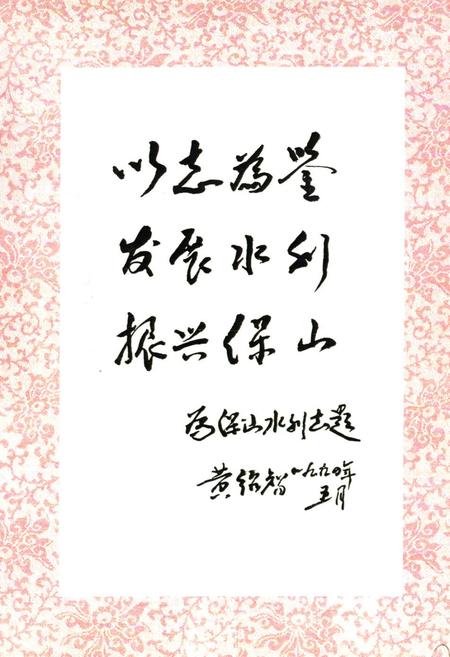 以志為鉴
发展水利
振兴保山
为保山水利志题
黄绍智 一九九〇年
五月